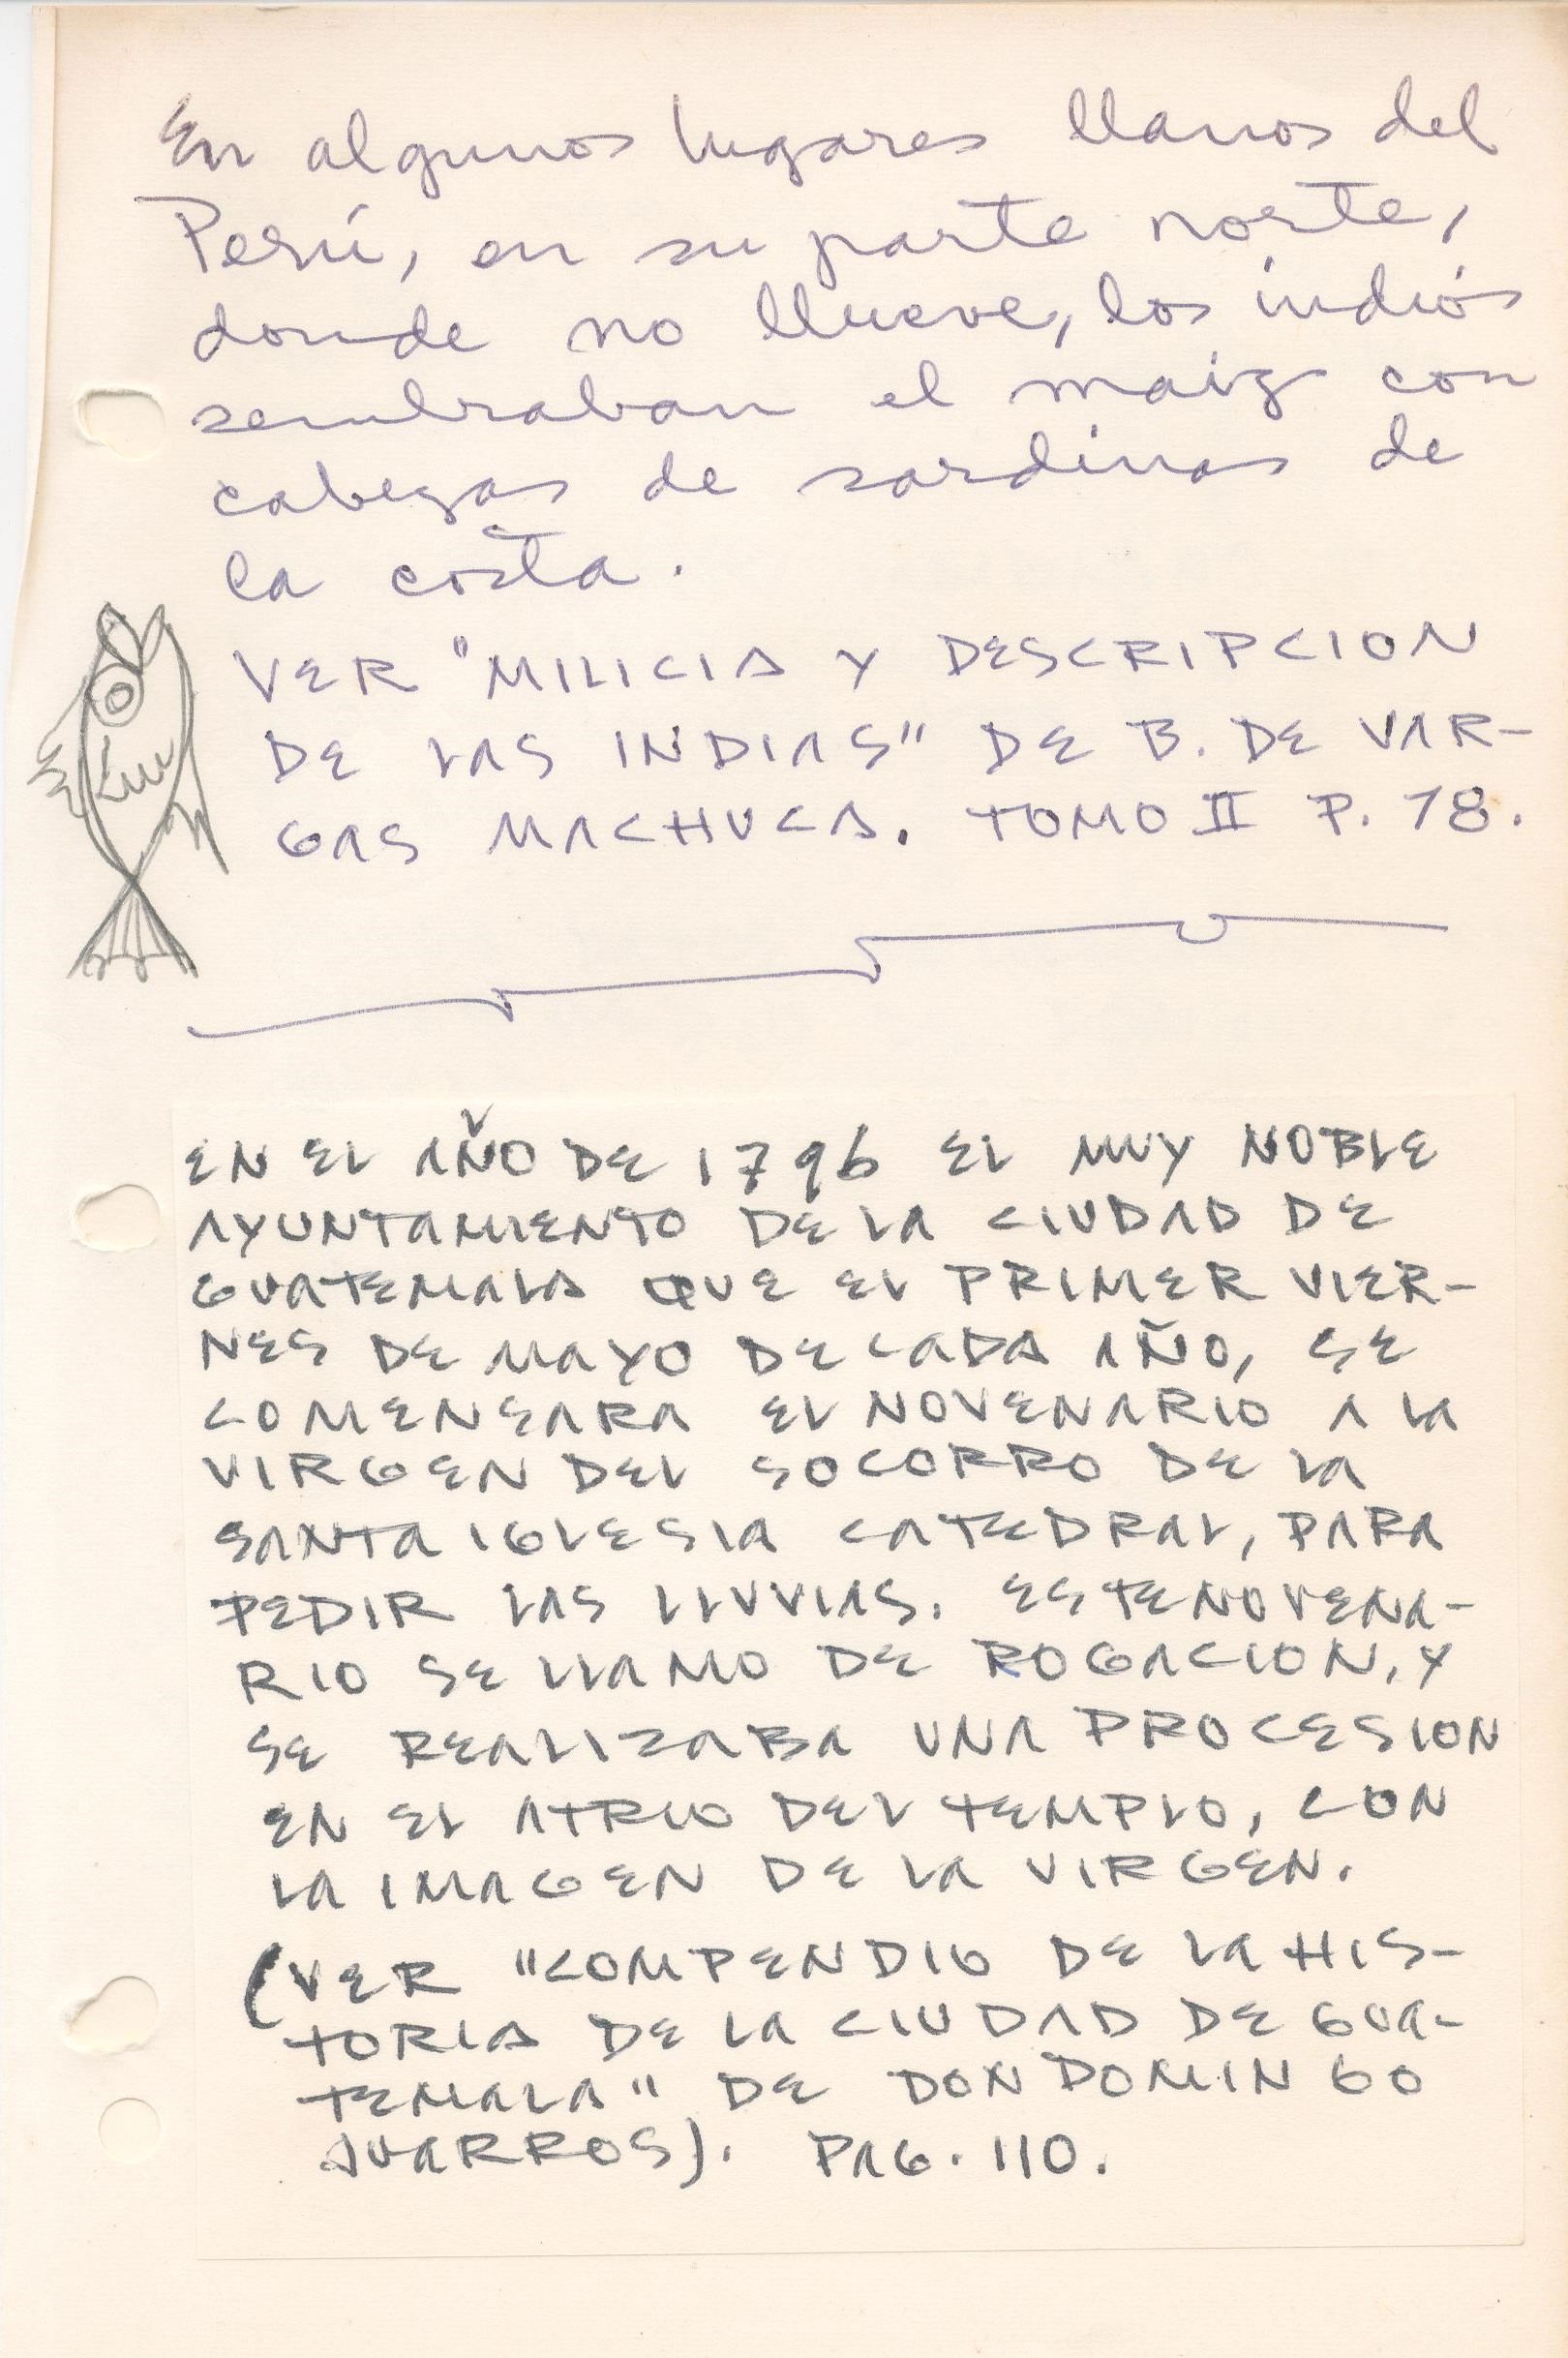 En algunos lugares llanos del
Perú, en su parte norte,
donde no llueve, los indios
sembraban el maiz con
cabezas de sardinas de
la costa.
VER "MILICIA Y DESCRIPCION
DE LAS INDIAS" DE B. DE VAR-
GAS MACHUCA. TOMO II P. 78.
EN EL AÑO DE 1796 EL MUY NOBLE
AYUNTAMIENTO DE LA CIUDAD DE
GUATEMALA QUE EL PRIMER VIER-
NES DE MAYO DE CADA AÑO, SE
COMENZARA EL NOVENARIO A LA
VIRGEN DEL SOCORRO DE LA
SANTA IGLESIA CATEDRAL, PARA
PEDIR LAS LLUVIAS. ESTE NOVENA-
RIO SE LLAMO DE ROGACION, Y
SE REALIZABA UNA PROCESION
EN EL ATRIO DEL TEMPLO, CON
LA IMAGEN DE LA VIRGEN.
(VER "COMPENDIO DE LA HIS-
TORIA DE LA CIUDAD DE GUA-
TEMALA" DE DON DOMINGO
JUARROS). PAG. 110.